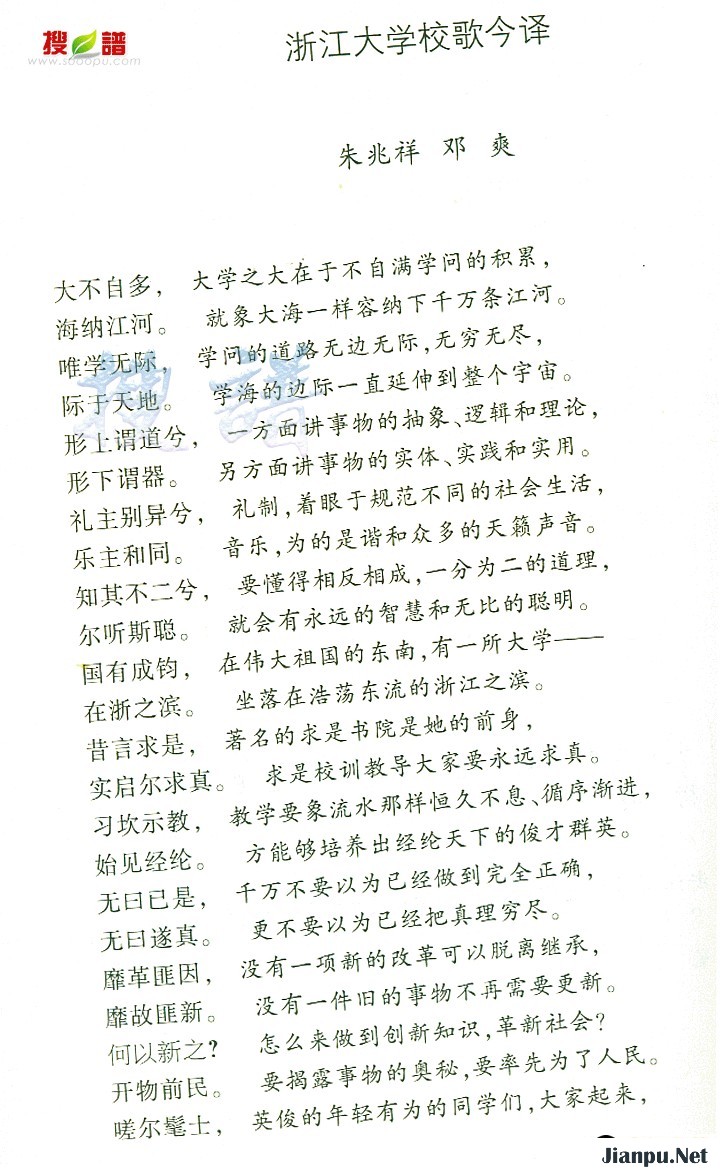 搜 譜
www.sooopu.com
浙江大学校歌今译
朱兆祥 邓 爽
大不自多， 大学之大在于不自满学问的积累，
海纳江河。 就象大海一样容纳下千万条江河。
唯学无际， 学问的道路无边无际，无穷无尽，
际于天地。 学海的边际一直延伸到整个宇宙。
形上谓道兮， 一方面讲事物的抽象、逻辑和理论，
形下谓器。 另方面讲事物的实体、实践和实用。
礼主别异兮， 礼制，着眼于规范不同的社会生活，
乐主和同。 音乐，为的是谐和众多的天籁声音。
知其不二兮， 要懂得相反相成，一分为二的道理，
尔听斯聪。 就会有永远的智慧和无比的聪明。
国有成钧， 在伟大祖国的东南，有一所大学——
在浙之滨。 坐落在浩荡东流的浙江之滨。
昔言求是， 著名的求是书院是她的前身，
实启尔求真。 求是校训教导大家要永远求真。
习坎示教， 教学要象流水那样恒久不息、循序渐进，
始见经纶。 方能够培养出经纶天下的俊才群英。
无曰已是， 千万不要以为已经做到完全正确，
无曰遂真。 更不要以为已经把真理穷尽。
靡革匪因， 没有一项新的改革可以脱离继承，
靡故匪新。 没有一件旧的事物不再需要更新。
何以新之？ 怎么来做到创新知识，革新社会？
开物前民。 要揭露事物的奥秘，要率先为了人民。
嗟尔髦士， 英俊的年轻有为的同学们，大家起来，
搜 譜
Jianpu.Net